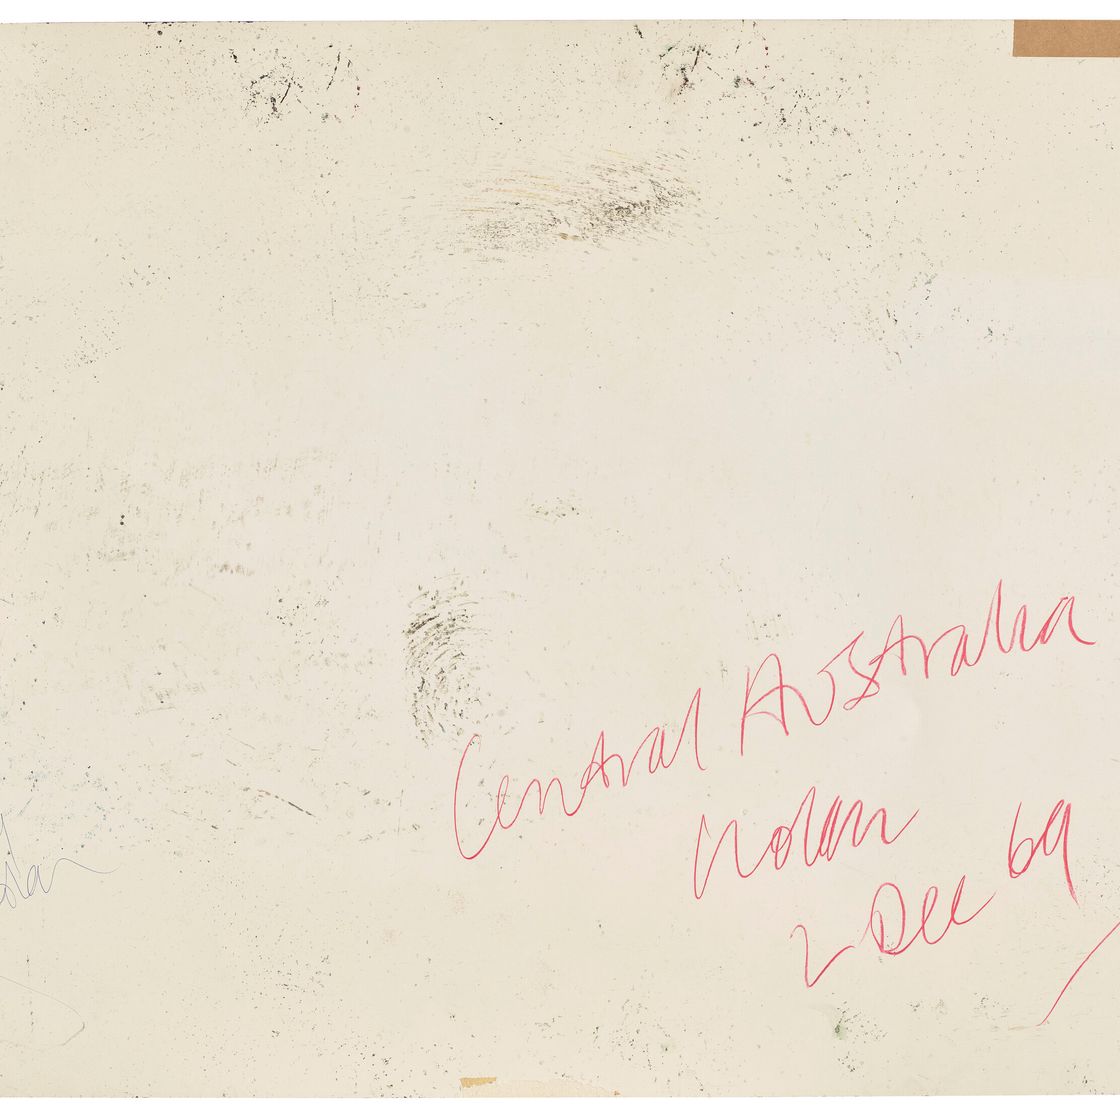 Central Australia
Nolan
2 Dec 69